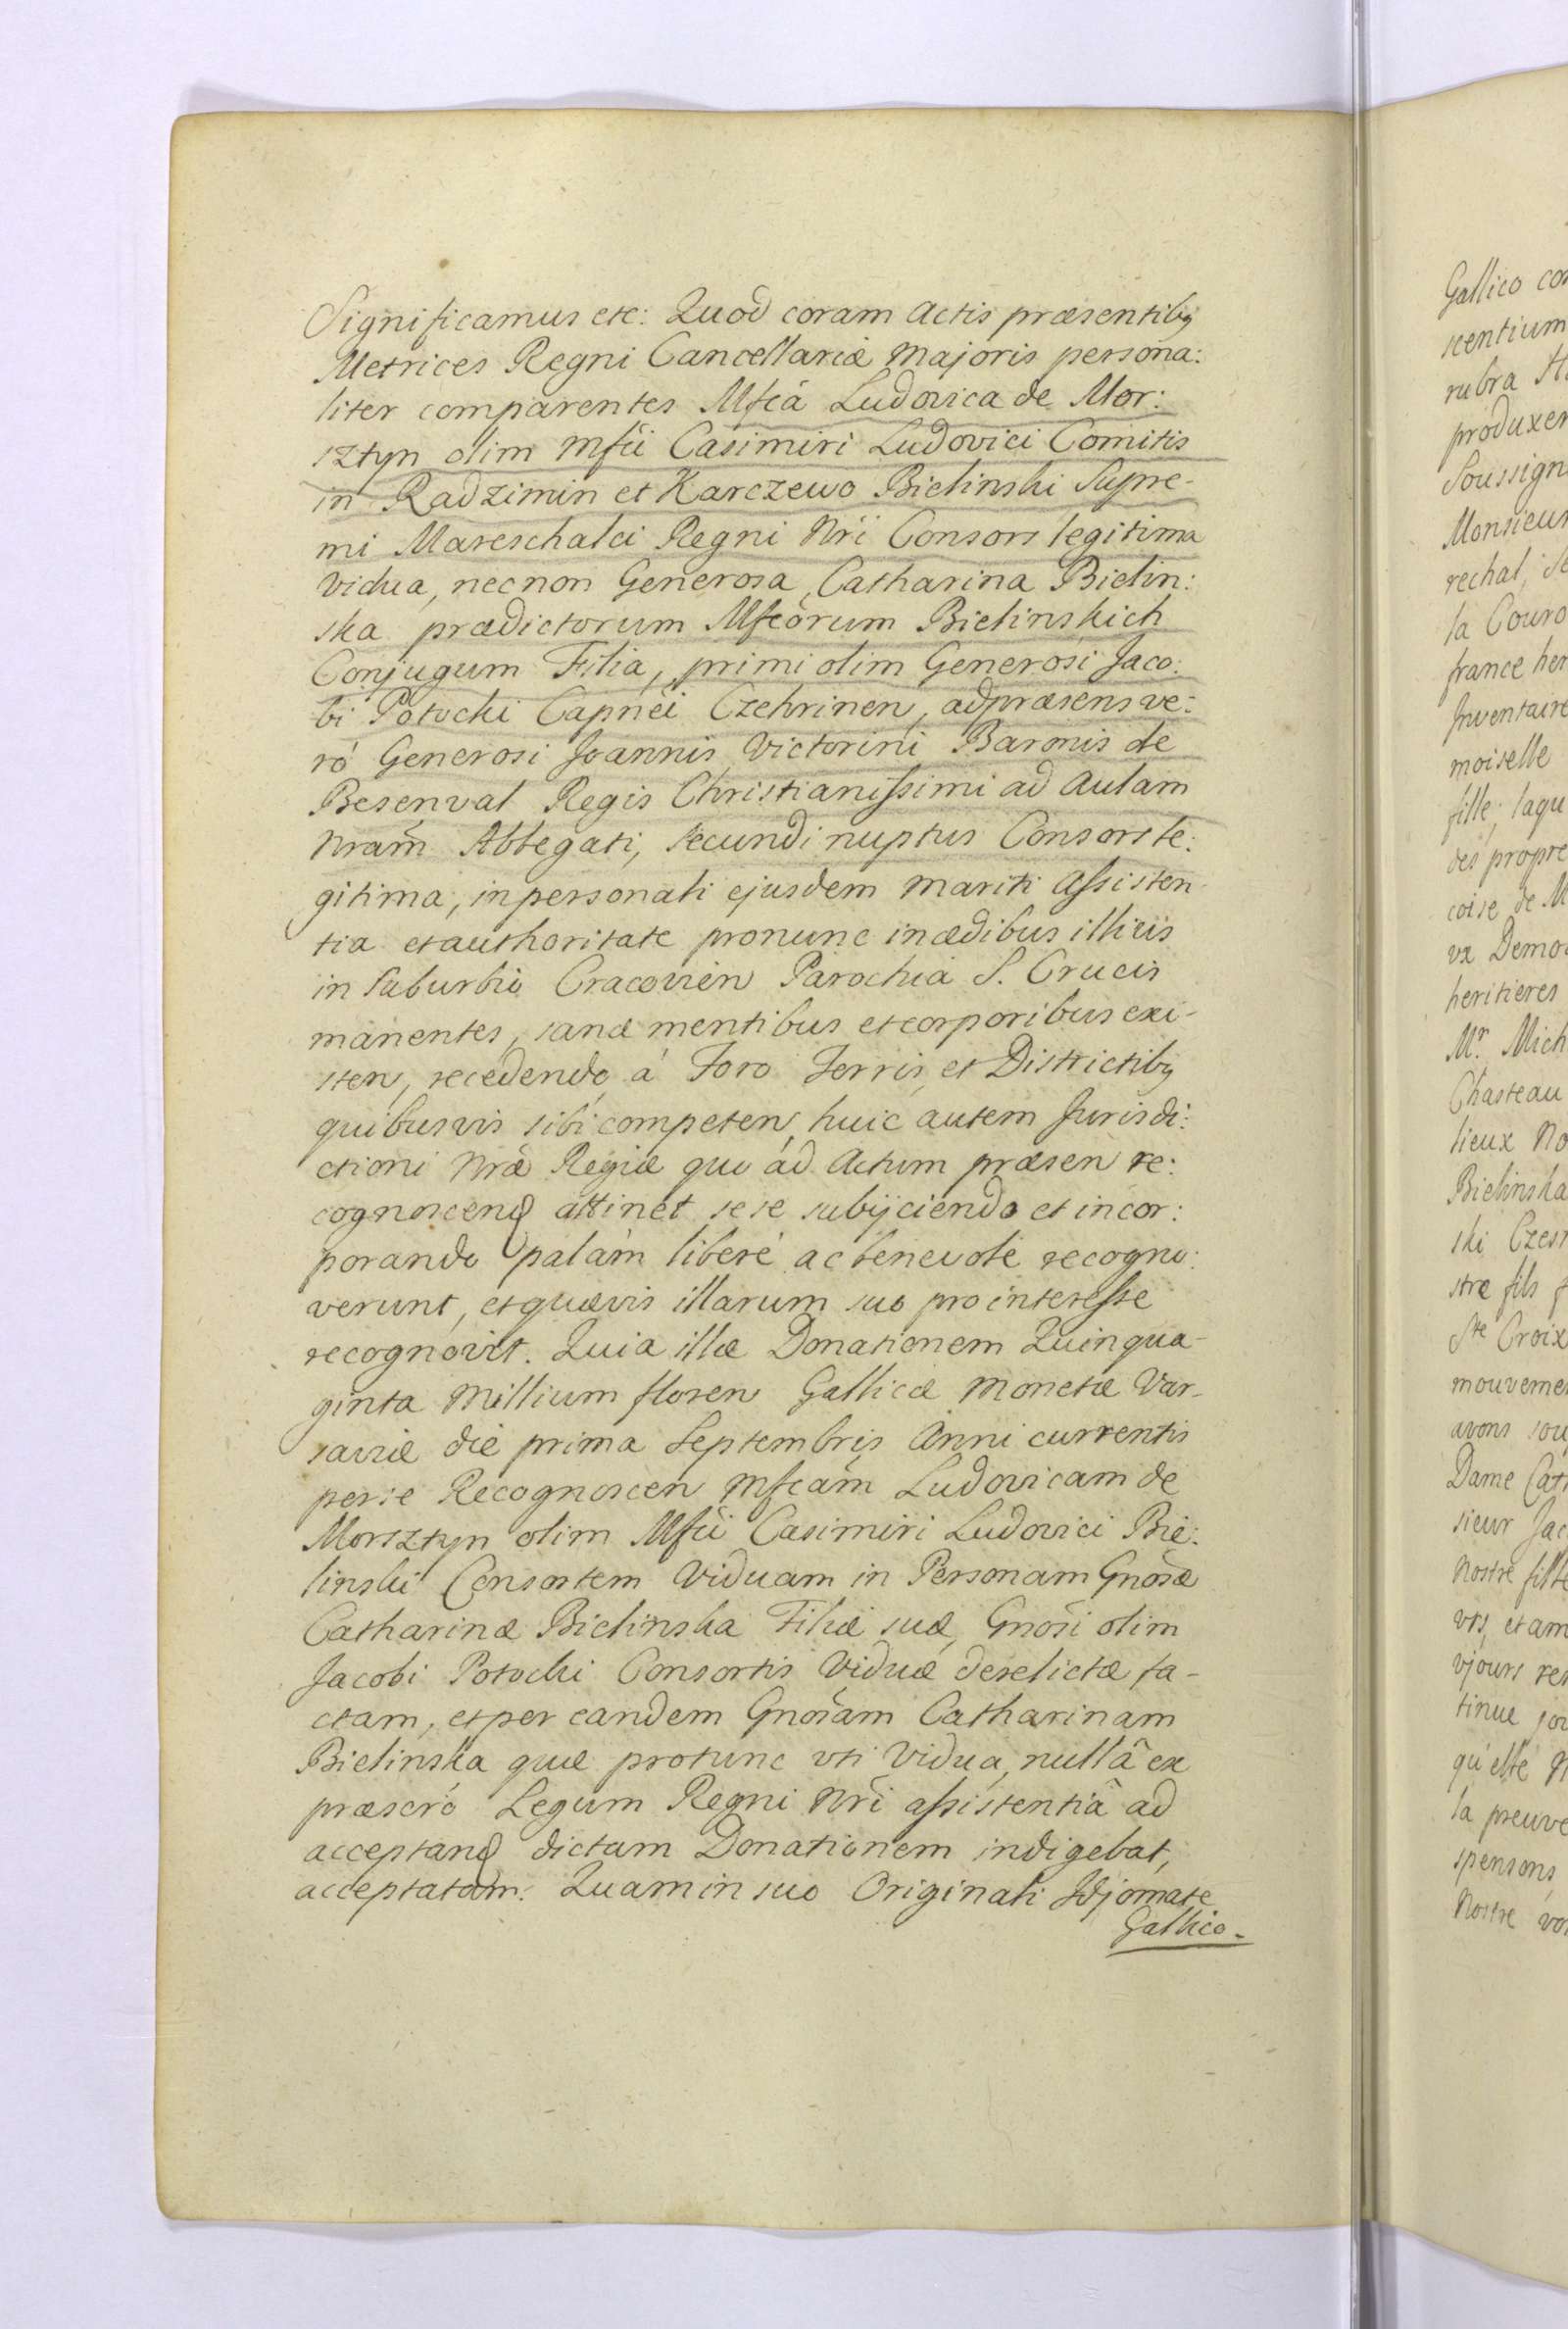 Significamus etc: Quod coram Actis præsentibq
Metrices Regni Cancellariæ Majoris persona:
liter comparentes Mfcá Ludovica de Mor:
sztyn olim Mfci Casimiri Ludovici Comitis
in Radzimin et Karczewo Bielinski Supre-
mi Mareschalci Regni Nri Consors legitima
Vidua, necnon Generosa Catharina Bielin:
ska prædictorum Mfcorum Bielinskich
Conjugum Filia, primi olim Generosi Jaco:
bi Potocki Capnei Czehrinen, adpræsens ve:
ró Generosi Joannis Victorini Baronis de
Besenval Regis Christianissimi ad Aulam
Nram Ablegati, secundi nuptus Consors le:
gitima, in personali ejusdem Mariti Assisten-
tia et authoritate pronunc in ædibus illius
in Suburbio Cracovien Parochia S. Crucis
manentes, sanæ mentibus et corporibus exi-
sten, recedendo á Foro Terris et Districtibq
quibusvis sibi competen, huic autem Jurisdi:
ctioni Nræ Regiæ quo ad Actum præsen re:
cognoscend attinet sese subijciendo et incor:
porando palám liberé ac benevolé recogno:
verunt, et quævis illarum suo pro interesse
recognovit. Quia illæ Donationem Quinqua-
ginta Millium floren Gallicæ Monetæ Var-
saviæ die prima Septembris Anni currentis
per se Recognoscen Mfcam Ludovicam de
Morsztyn olim Mfci Casimiri Ludovici Bie:
linski Consortem Viduam in Personam Gnosæ
Catharinæ Bielinska Filiæ suæ, Gnosi olim
Jacobi Potocki Consortis Viduæ derelictæ fa-
ctam, et per eandem Gnosam Catharinam
Bielinska quæ protunc uti Vidua, nullâ ex
præscró Legum Regni Nri assistentiâ ad
acceptand dictam Donationem indigebat,
acceptatam. Quam in suo Originali Idjomate
Gallico-
Gallico
scentium
rubra
Soussign
Monsieur
rechal,
la Couro
france her
Inventaire
moiselle
fille; laqu
des propre
coise de M
heritieres
Mr. Mich
Chasteau
lieux No
Bielinska
ski
fils
Ste Croix
mouvemen
avons
Dame
sieur Jac
Nostre fille
tinue
qu'elle
la preuve
spensons
Nostre